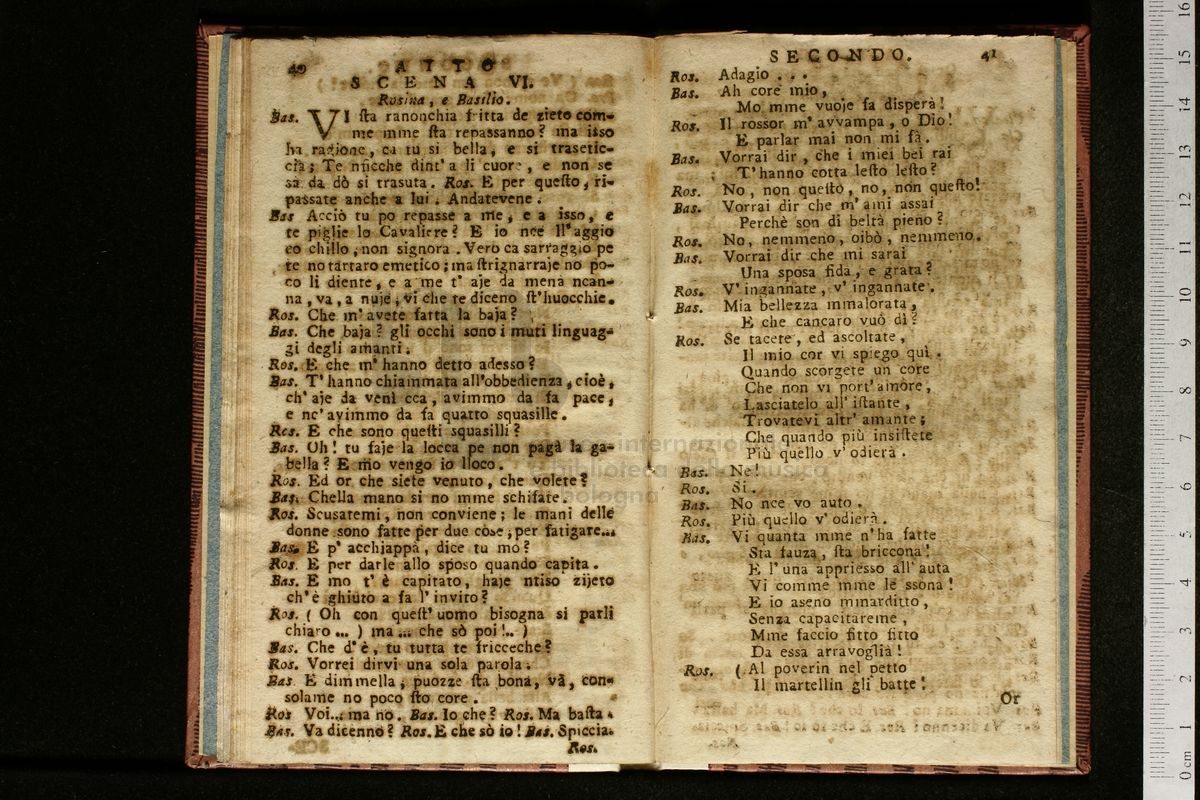 40 ATTO
SCENA VI.
Rosina, e Basilio.
Bas. VI sta ranonchia fritta de zieto com-
me mme sta repassanno? ma isso
ha ragione, ca tu si bella, e si trasetic-
cia; Te nficche dint' a li cuore, e non se
sa da dò si trasuta. Ros. E per questo, ri-
passate anche a lui. Andatevene.
Bas Acciò tu po repasse a me, e a isso, e
te piglie lo Cavaliere? E io nce ll' aggio
co chillo, non signora. Vero ca sarraggio pe
te no tartaro emetico; ma strignarraje no po-
co li diente, e a me t' aje da menà ncan-
na, va, a nuje, vi che te diceno st' huocchie.
Ros. Che m' avete fatta la baja?
Bas. Che baja? gli occhi sono i muti linguag-
gi degli amanti.
Ros. E che m' hanno detto adesso?
Bas. T' hanno chiammata all' obbedienza, cioè,
ch' aje da venì cca, avimmo da fa pace,
e nc' avimmo da fa quatto squasille.
Ros. E che sono questi squasilli?
Bas. Oh! tu faje la locca pe non pagà la ga-
bella? E mò vengo io lloco.
Ros. Ed or che siete venuto, che volete?
Bas. Chella mano si no mme schifate.
Ros. Scusatemi, non conviene; le mani delle
donne sono fatte per due còse, per fatigare...
Bas. E p' acchiappà, dice tu mò?
Ros. E per darle allo sposo quando capita.
Bas. E mo t' è capitato, haje ntiso zijeto
ch' è ghiuto a fa l' invito?
Ros. ( Oh con quest' uomo bisogna si parli
chiaro ... ) ma ... che sò poi!.. )
Bas. Che d' è, tu tutta te fricceche?
Ros. Vorrei dirvi una sola parola.
Bas. E dimmella, puozze sta bona, và, con-
solame no poco sto core.
Ros Voi... ma no. Bas. Io che? Ros. Ma basta.
Bas. Va dicenno? Ros. E che sò io! Bas. Spiccia.
Ros.
SECONDO. 41
Ros. Adagio ...
Bas. Ah core mio,
Mo mme vuoje fa disperà!
Ros. Il rossor m' avvampa, o Dio!
E parlar mai non mi fà.
Bas. Vorrai dir, che i miei bei rai
T' hanno cotta lesto lesto?
Ros. No, non questo, no, non questo!
Bas. Vorrai dir che m' ami assai
Perchè son di beltà pieno?
Ros. No, nemmeno, oibò, nemmeno.
Bas. Vorrai dir che mi sarai
Una sposa fida, e grata?
Ros. V' ingannate, v' ingannate.
Bas. Mia bellezza mmalorata,
E che cancaro vuò dì?
Ros. Se tacete, ed ascoltate,
Il mio cor vi spiego quì.
Quando scorgete un core
Che non vi port' amore,
Lasciatelo all' istante,
Trovatevi altr' amante;
Che quando più insistete
Più quello v' odierà.
Bas. Ne!
Ros. Si.
Bas. No nce vo auto.
Ros. Più quello v' odierà.
Bas. Vi quanta mme n' ha fatte
Sta fauza, sta briccona!
E l' una appriesso all' auta
Vi comme mme le ssona!
E io aseno mmarditto,
Senza capacitareme,
Mme faccio fitto fitto
Da essa arravoglia!
Ros. ( Al poverin nel petto
Il martellin gli batte!
Or